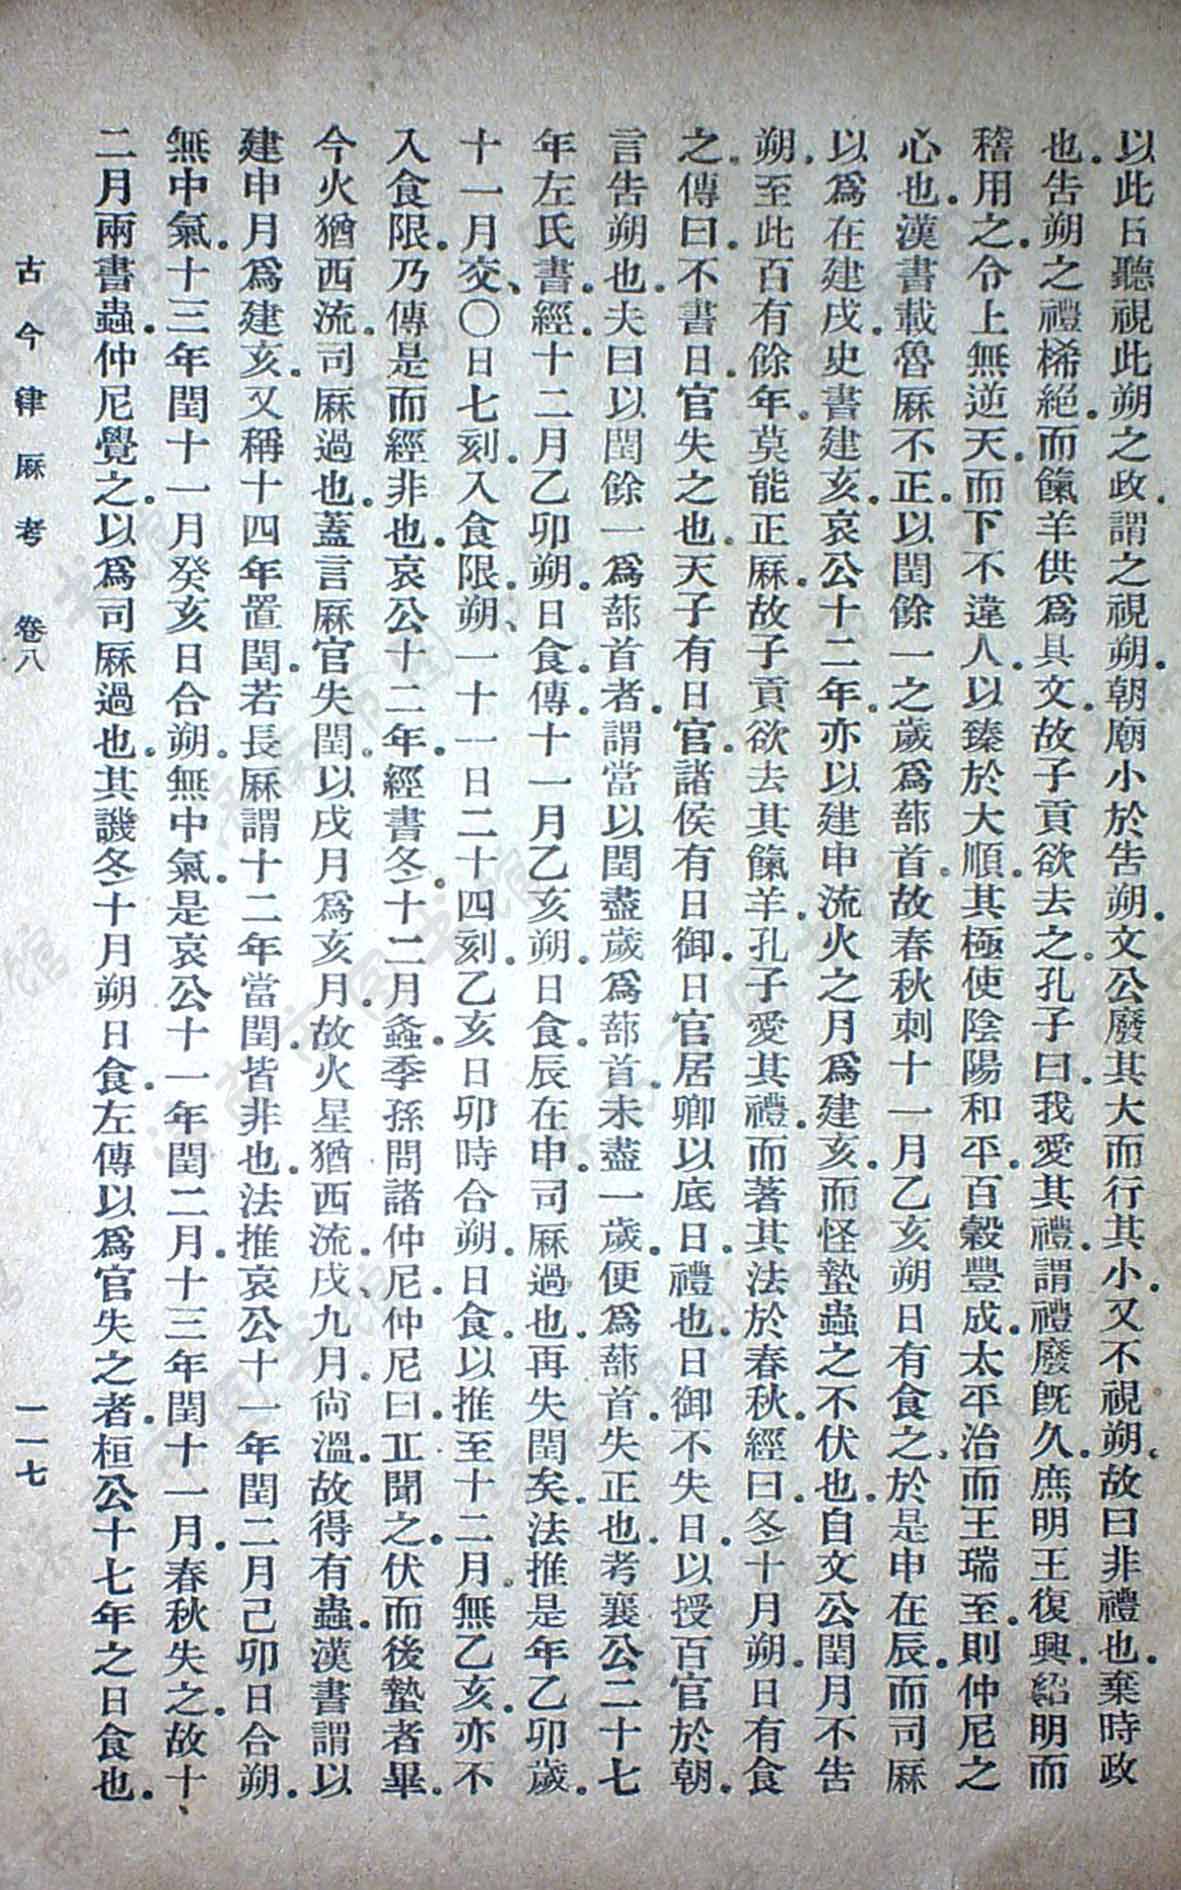 以此日聽視此朔之政。謂之視朔。朝廟小於告朔。文公廢其大而行其小。又不視朔。故曰非禮也。棄時政
也。告朔之禮桸絕。而餼羊供爲具文。故子貢欲去之。孔子曰。我愛其禮。謂禮廢旣久。庶明王復興。紹明而
稽用之。令上無逆天。而下不違人。以臻於大順。其極使陰陽和平。百穀豐成。太平治而王瑞至。則仲尼之
心也。漢書載魯厤不正。以閏餘一之歲爲蔀首。故春秋刺十一月乙亥朔日有食之。於是申在辰。而司厤
以爲在建戌。史書建亥。哀公十二年。亦以建申流火之月爲建亥。而怪蟄蟲之不伏也。自文公閏月不告
朔。至此百有餘年。莫能正厤。故子貢欲去其餼羊。孔子愛其禮。而著其法於春秋。經曰。冬十月朔。日有食
之。傳曰。不書日。官失之也。天子有日官。諸侯有日御。日官居卿以底日。禮也。日御不失日。以授百官於朝。
言告朔也。夫曰以閏餘一爲蔀首者。謂當以閏盡歲爲蔀首。未盡一歲。便爲蔀首。失正也。考襄公二十七
年左氏書。經。十二月乙卯朔。日食。傳。十一月乙亥朔。日食。辰在申。司厤過也。再失閏矣。法推是年乙卯歲。
十一月交、〇日七刻。入食限。朔、一十一日二十四刻。乙亥日卯時合朔。日食。以推至十二月。無乙亥。亦不
入食限。乃傳是而經非也。哀公十二年。經書冬。十二月螽。季孫問諸仲尼。仲尼曰。丘聞之。伏而後蟄者畢。
今火猶西流。司厤過也。蓋言厤官失閏。以戌月爲亥月。故火星猶西流。戌、九月。尙溫。故得有蟲。漢書謂以
建申月爲建亥。又稱十四年置閏。若長厤謂十二年當閏。皆非也。法推哀公十一年閏二月己卯日合朔。
無中氣。十三年閏十一月癸亥日合朔。無中氣。是哀公十一年閏二月。十三年閏十一月。春秋失之。故十、
二月兩書蟲。仲尼覺之。以爲司厤過也。其譏冬十月朔日食。左傳以爲官失之者。桓公十七年之日食也。
古今律厤考 卷八 一一七